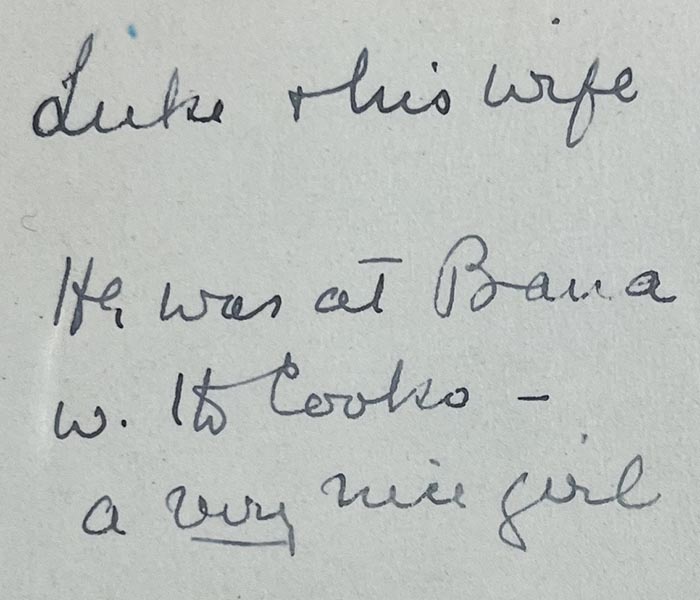 Luke + his wife
He was at Bana
w. the Cooks -
a very nice girl